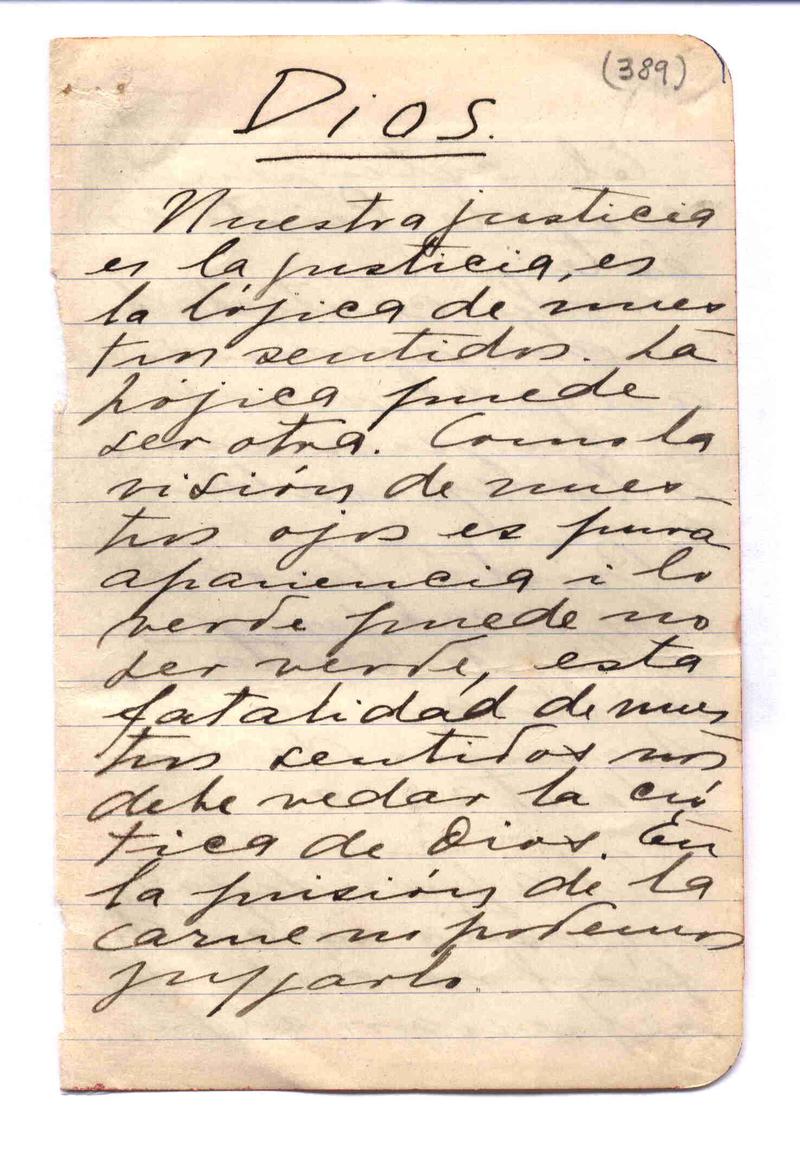 (389)
Dios.
Nuestra justicia
es la justicia, es
la lójica de nues
tros sentidos. La
lójica puede
ser otra. Como la
visión de nues-
tros ojos es pura
apariencia i lo
verde puede no
ser verde, esta
fatalidad de nues
tros sentidos nos
debe vedar la crí
tica de Dios. En
la prisión de la
carne no podemos
juzgarlo.